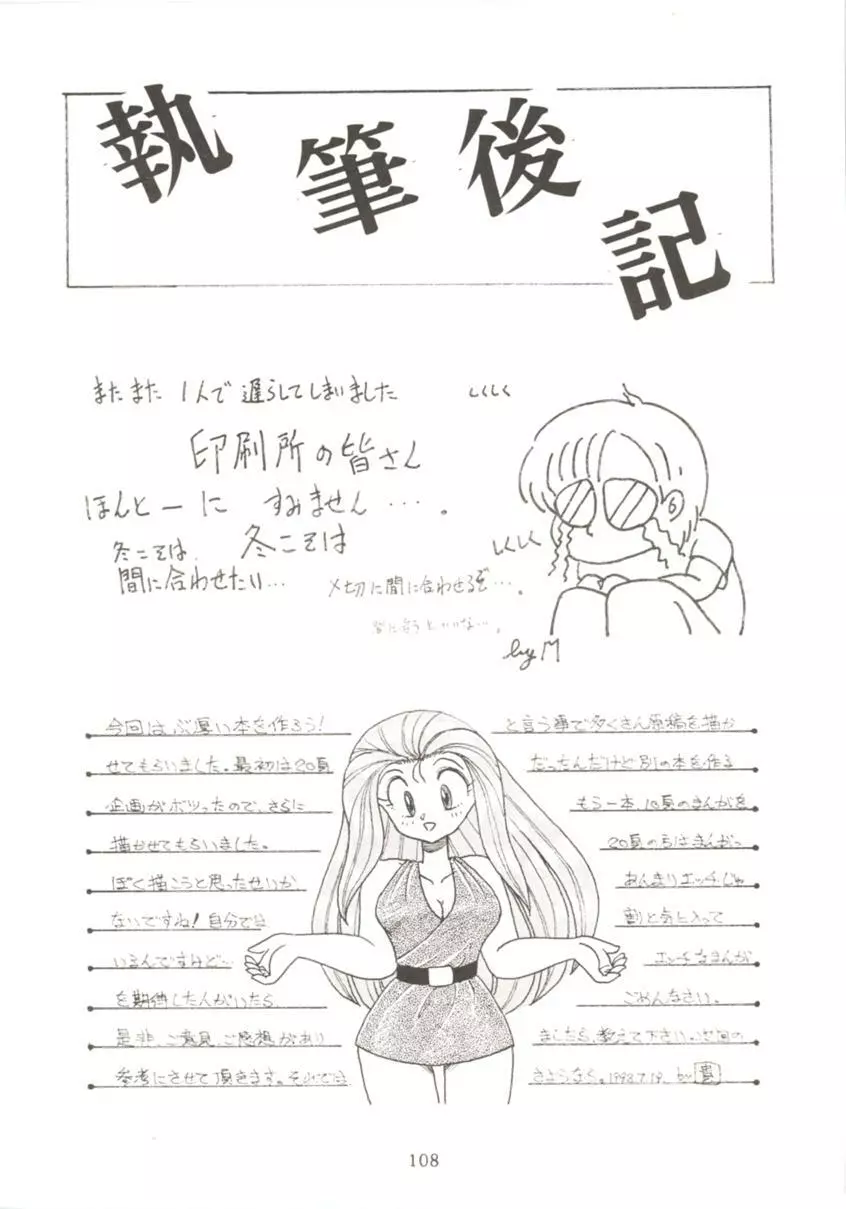 執筆後記
またまた 1人で遅らしてしまいました
しくしく
印刷所の皆さん
ほんとーに すみません…。
しくしく
冬こそは、 冬こそは
間に合わせたい…
〆切に間に合わせるぞ…。
by M
今回はぶ厚い本を作ろう! と言う事で多くさん原稿を描か
せてもらいました。最初は20頁 だったんだけど別の本を作る
企画がボツったので、さらに もう一本、10頁のまんがを
描かせてもらいました。 20頁の方はまんがっ
ぽく描こうと思ったせいか あんまりエッチじゃ
ないですね! 自分では 割と気に入って
いるんですけど… エッチなまんが
を期待した人がいたら ごめんなさい。
是非、ご意見、ご感想があり ましたら、教えて下さい。次回の
参考にさせて頂きます。それでは さようなら。1998.7.19. by 貴
108